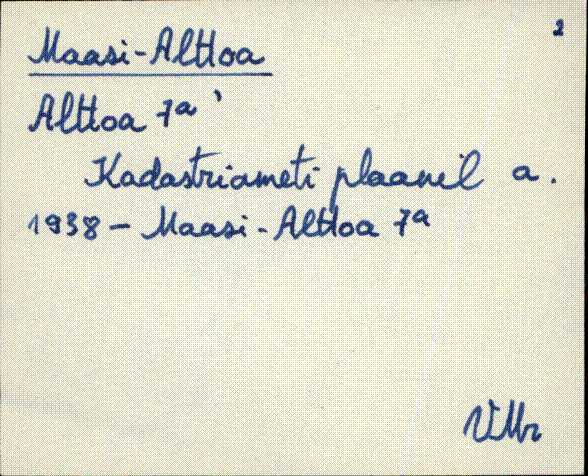 2
Maasi-Alttoa
Alttoa 7a
Kadastriameti plaanil a.
1938 - Maasi-Alttoa 7a
VMr